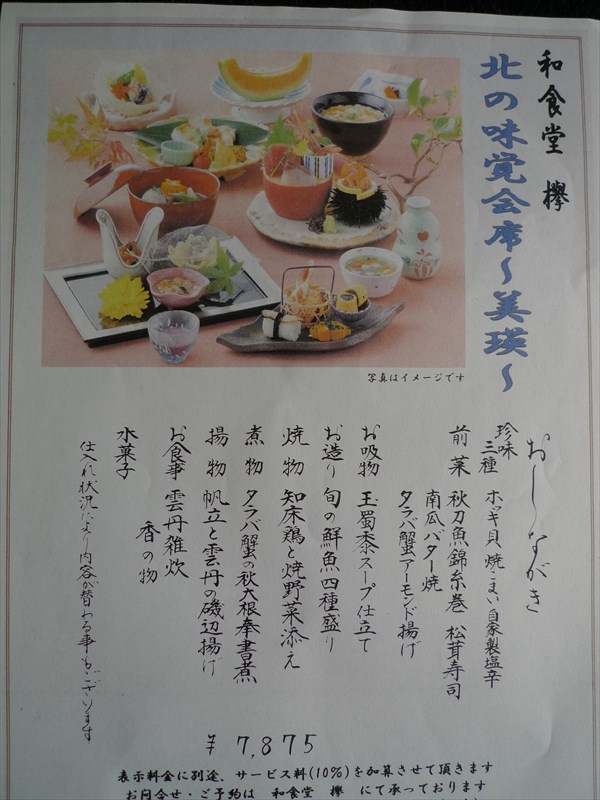 和食堂 欅
北の味覚会席～美瑛～
写真はイメージです
おしながき
珍味三種 ホッキ貝 焼こまい 自家製塩辛
前菜 秋刀魚錦糸巻 松茸寿司
南瓜バター焼
タラバ蟹アーモンド揚げ
お吸物 玉蜀黍スープ仕立て
お造り 旬の鮮魚四種盛り
焼物 知床鶏と焼野菜添え
煮物 タラバ蟹の秋大根奉書煮
揚物 帆立と雲丹の磯辺揚げ
お食事 雲丹雑炊
香の物
水菓子
仕入れ状況により内容が替わる事もございます
¥ 7,875
表示料金に別途、サービス料(10%)を加算させて頂きます
お問合せ・ご予約は 和食堂 欅 にて承っております